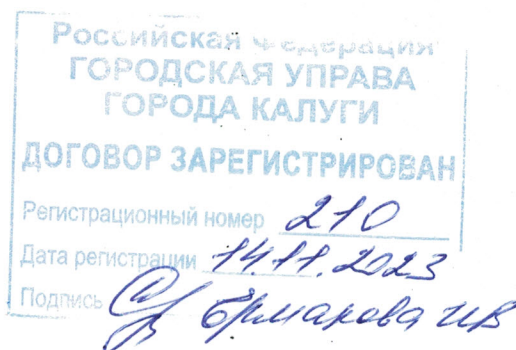 Российская Федерация
ГОРОДСКАЯ УПРАВА
ГОРОДА КАЛУГИ
ДОГОВОР ЗАРЕГИСТРИРОВАН
Регистрационный номер 210
Дата регистрации 14.11.2023
Подпись Ермакова ИВ